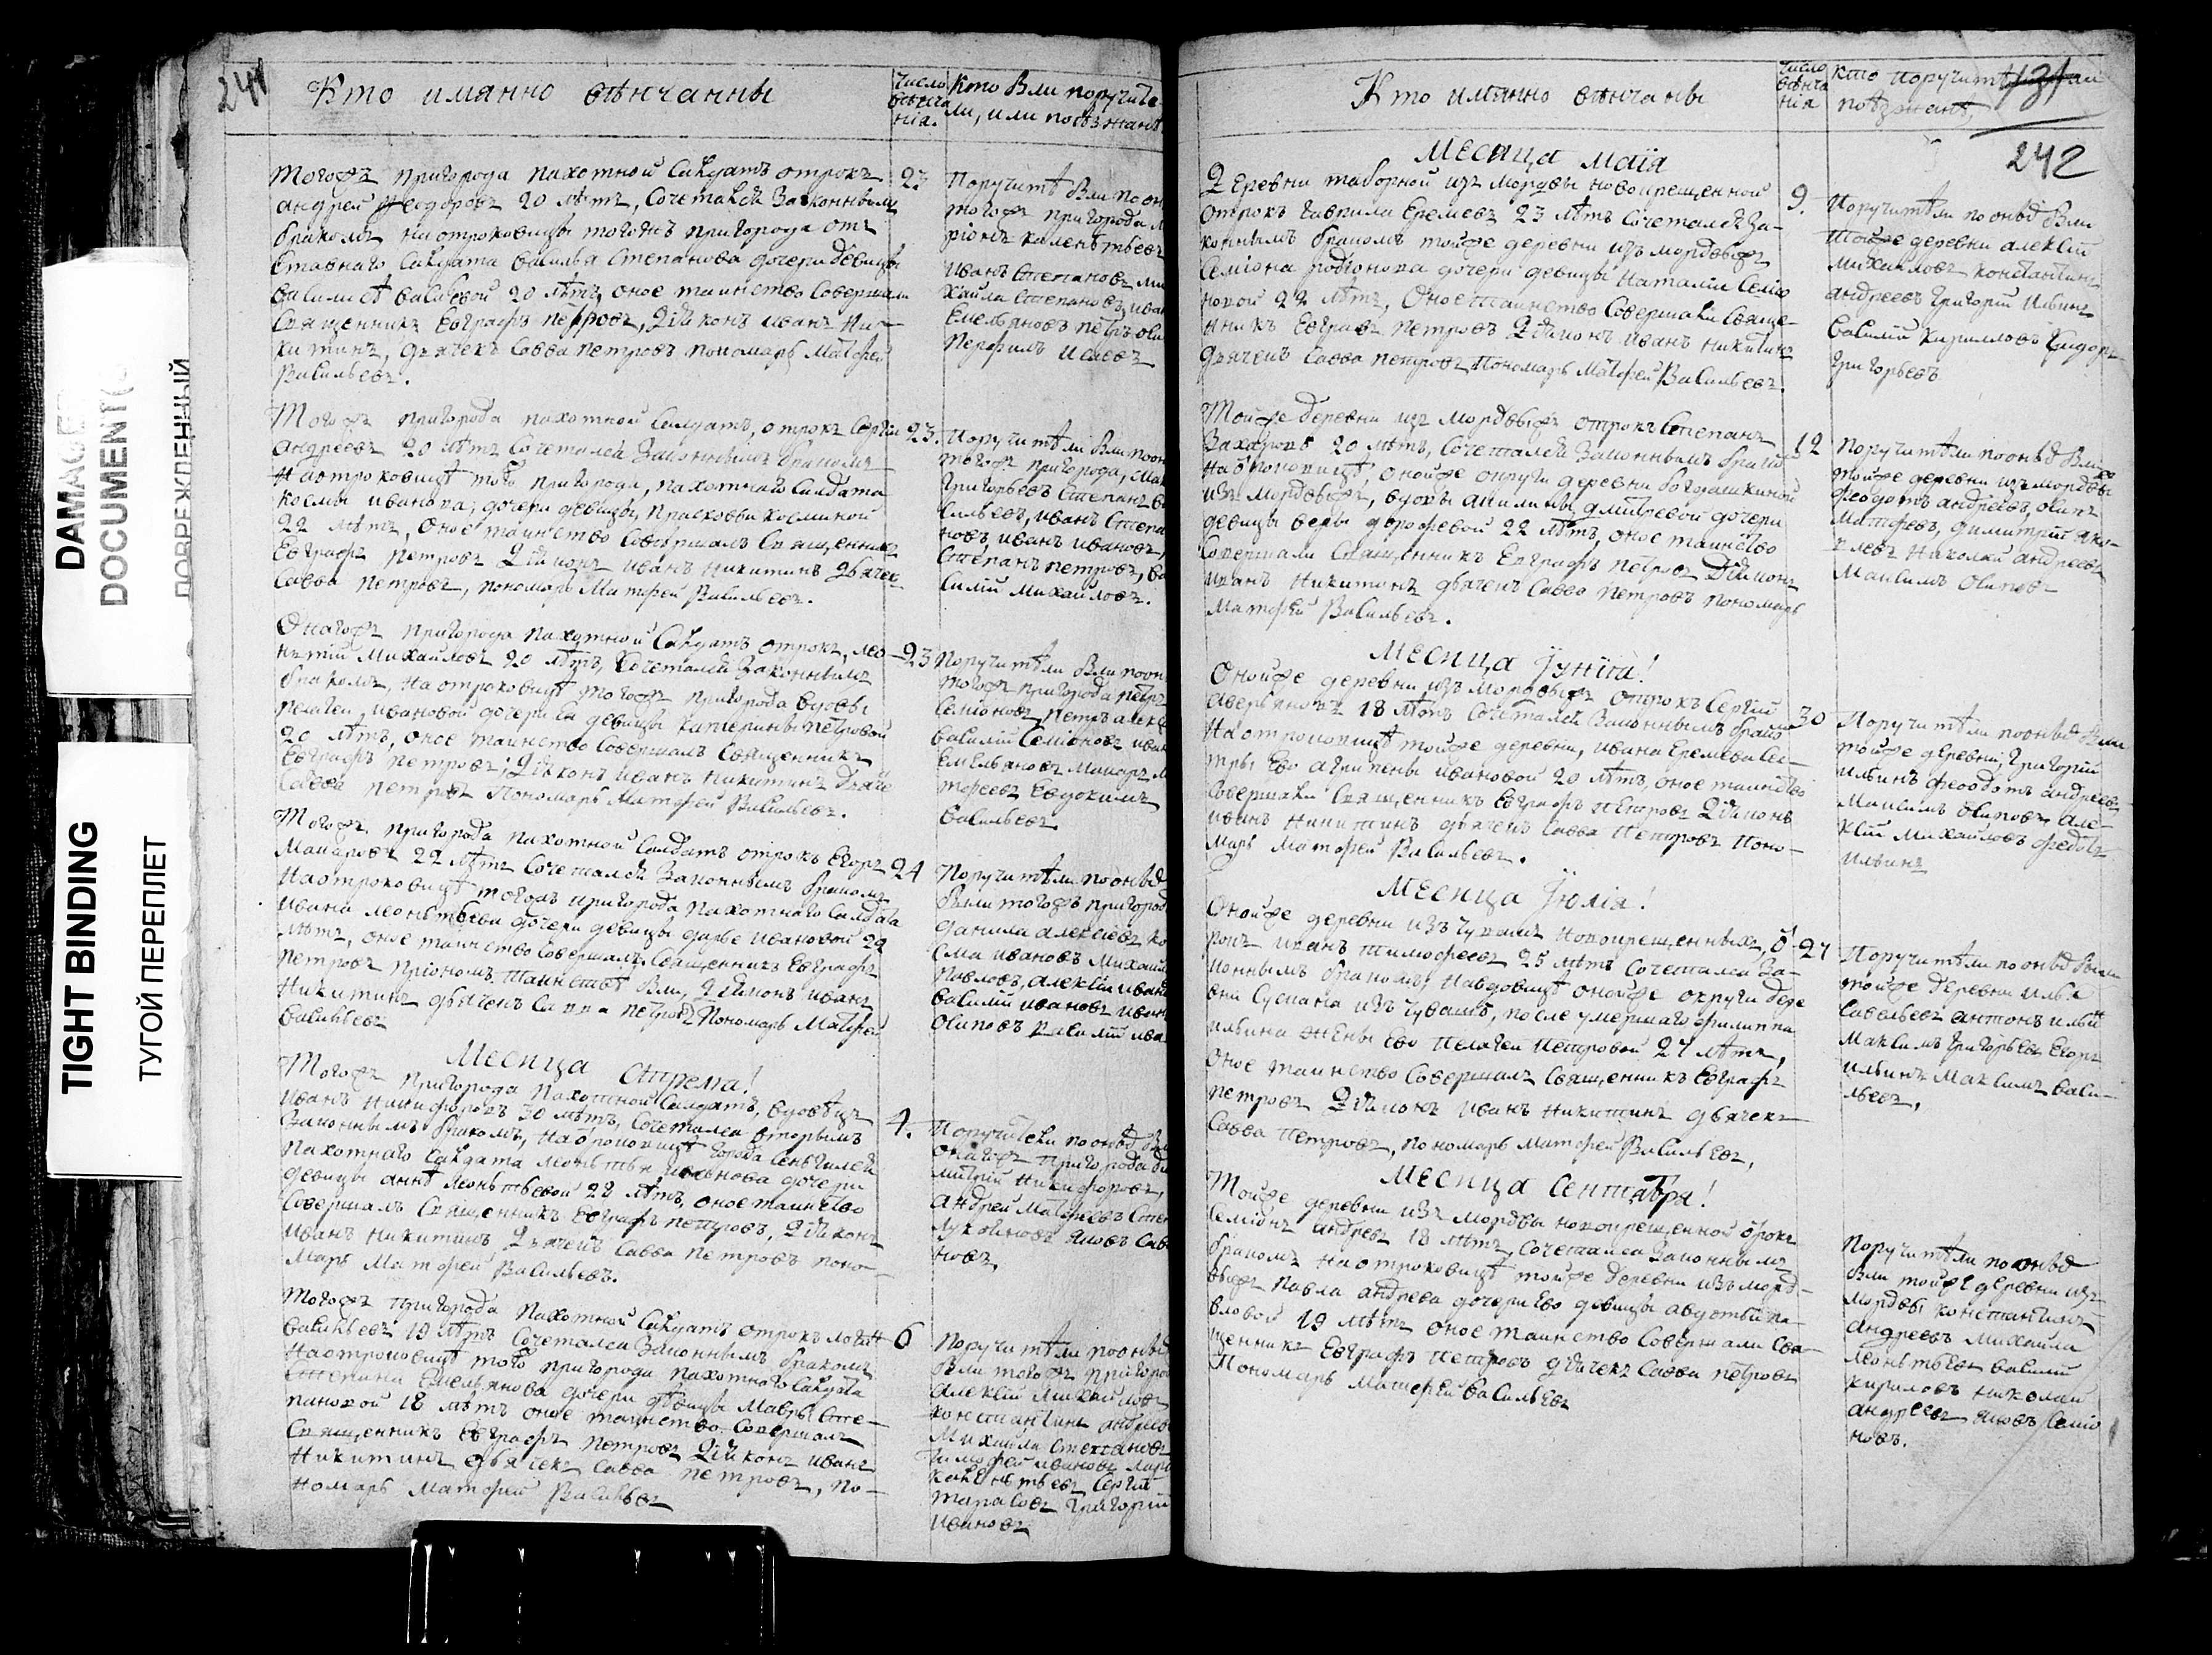 DAMAGED
DOCUMENT(S)
ПОВРЕЖДЕННЫЙ
TIGHT BINDING
ТУГОЙ ПЕРЕПЛЕТ
241
Кто имянно венчанны
Число венчания.
Кто были поручители, или поезжанѣ
тогожъ пригорода пахотной салдатъ отрокъ
андрей Феодоровъ 20 лѣтъ, сочетался законнымъ
бракомъ на отроковицы тогожъ пригорода отъ
ставнаго салдата василья степанова дочери девицы
василисѣ васильевой 20 лѣтъ, оное таинство совершали
священникъ Евграфъ петровъ, діаконъ иванъ Ни-
китинъ, дьячекъ савва петровъ пономарь Матфей
Васильевъ.
23
Поручители были по он
тогожъ пригорода
иванъ степановъ ми
хайла степановъ иван
Емельяновъ петръ оси
перфилъ исаевъ
Тогожъ пригорода пахотной салдатъ, отрокъ сергій
андреевъ 20 лѣтъ сочетался законнымъ бракомъ
На отроковицѣ того пригорода, пахотнаго салдата
космы иванова, дочери девицы, прасковьи косминой
22 лѣтъ, оное таинство совершалъ священникъ
Евграфъ петровъ діаконъ иванъ никитинъ дьячекъ
савва петровъ, пономарь Матфей Васильевъ.
23.
Поручители были по он
тогожъ пригорода, ма
григорьевъ степанъ ва
сильевъ, иванъ степа
новъ, иванъ ивановъ,
степанъ петровъ, ва
силій михайловъ.
Онагожъ пригорода пахотной салдатъ отрокъ, лео-
нтій михайловъ 20 лѣтъ, сочетался законнымъ
бракомъ, на отроковицѣ тогожъ пригорода вдовы
пелагеи ивановой дочери Ея девицы катерины петровой
20 лѣтъ, оное таинство совершалъ священникъ
Евграфъ петровъ, діаконъ иванъ никитинъ дьяче
савва петровъ Пономарь Матфей Васильевъ.
23
Поручители были по он
тогожъ пригорода петръ
семіоновъ, петръ алексе
василій семіоновъ иван
Емельяновъ макаръ м
тфеевъ Евдокимъ
васильевъ
Тогожъ пригорода пахотной салдатъ отрокъ Егоръ
Макаровъ 22 лѣтъ сочетался законнымъ бракомъ
На отроковицѣ тогожъ пригорода пахотнаго салдата
ивана леонтьева дочери девицы дарье ивановой 22
лѣтъ, оное таинство совершалъ священникъ Евграфъ
петровъ при ономъ таинствѣ были, діаконъ иванъ
Никитинъ дьячекъ савва петровъ Пономарь Матфей
васильевъ
24
Поручители по онъбд
были тогожъ пригород
данила алексеевъ ко
сма ивановъ михаил
павловъ, алексій иван
василій ивановъ иван
осиповъ василій ива
Месяца апреля!
Тогожъ пригорода Пахотной салдатъ, вдовецъ
иванъ Никифоровъ 30 лѣтъ, сочетался вторымъ
законнымъ бракомъ, на отроковицѣ города сенгилея
пахотнаго салдата леонтья иванова дочери
девицы аннѣ леонтьевой 22 лѣтъ, оное таинство
совершалъ священникъ Евграфъ петровъ, діаконъ
иванъ никитинъ, дьячекъ савва петровъ поно-
марь Матфей Васильевъ.
4.
Поручители по онъбд бы
онагожъ пригорода ди
митрій никифоровъ,
андрей матфеевъ степ
яковъ сав
новъ,
Тогожъ пригорода пахотной салдатъ отрокъ логин
васильевъ 19 лѣтъ сочетался законнымъ бракомъ
На отроковицѣ того пригорода пахотнаго салдата
степана Емельянова дочери девицы мавры сте-
пановой 18 лѣтъ оное таинство совершалъ
священникъ Евграфъ петровъ діаконъ иванъ
Никитинъ дьячекъ савва петровъ, по-
номарь Матфей Васильевъ
6
Поручители по онъбд
были тогожъ пригоро
алексій михайловъ
константинъ андреев
Михайла степановъ
Тимофей ивановъ
сергій
тарасовъ григорій
ивановъ
Кто имянно венчаны
Число венчания
Кто поручит или
поезжанѣ,
131
242
Месяца маїя
Деревни таборной изъ мордвы новокрещенной
отрокъ гаврила Еремеевъ 23 лѣтъ сочетался за-
коннымъ бракомъ тойже деревни изъ мордвыжъ
семіона родіонова дочери девицы наталіи семіо
новой 22 лѣтъ, Оное таинство совершали священ-
никъ Евграфъ петровъ діаконъ иванъ никитинъ
дьячекъ савва петровъ Пономарь Матфей Васильевъ
9.
Поручители по онъбд были
тойже деревни алексій
михайловъ константинъ
андреевъ григорій ильинъ
василій кирилловъ
григорьевъ
Тойже деревни изъ мордвыжъ отрокъ степанъ
Захаровъ 20 лѣтъ, сочетался законнымъ брако
На отроковицѣ онойже округи деревни богдашкиной
изъ мордвыжъ, вдовы акилины дмитревой дочери
девицы веры дорофеевой 22 лѣтъ, оное таинство
совершали священникъ Евграфъ петровъ Діаконъ
иванъ никитинъ дьячекъ савва петровъ пономарь
Матфей Васильевъ.
12
Поручители по онъбд были
тойже деревни изъ мордвы
феодотъ андреевъ, осипъ
матфеевъ, димитрій яко-
влевъ николай андреевъ
максимъ осиповъ
Месяца Іунїя!
Онойже деревни изъ мордвыжъ отрокъ сергій
аверьяновъ 18 лѣтъ сочетался законнымъ брако
На отроковицѣ тойже деревни, ивана Еремеева се-
тры Ево агрипены ивановой 20 лѣтъ, оное таинство
совершали священникъ Евграфъ петровъ діаконъ
иванъ никитинъ дьячекъ савва петровъ поно-
марь Матфей Васильевъ.
30
Поручители по онъбд были
тойже деревни, григорій
ильинъ феодотъ андреевъ
максимъ осиповъ, але-
ксій михайловъ федотъ
ильинъ
Месяца Іюлія!
Онойже деревни изъ чувашъ новокрещенныхъ, о
рокъ иванъ тимофеевъ 25 лѣтъ сочетался за-
коннымъ бракомъ, на вдовицѣ онойже округи дере
вни изъ чувашъ, после умершаго филиппа
ильина жены Ево пелагеи петровой 27 лѣтъ,
оное таинство совершалъ священникъ Евграфъ
петровъ Діаконъ иванъ никитинъ дьячекъ
савва петровъ, пономарь матфей Васильевъ,
27
Поручители по онъбд были
тойже деревни илья
савельевъ антонъ ильи
максимъ григорьевъ Егоръ
ильинъ максимъ васи-
льевъ,
Месяца сентября!
Тойже деревни изъ мордвы новокрещенной орокъ
семіонъ андреевъ 18 лѣтъ, сочетался законнымъ
бракомъ на отроковицѣ тойже деревни изъ морд-
выжъ павла андреева дочери Ево девицы авдотьи па-
вловой 19 лѣтъ оное таинство совершали свя-
щенникъ Евграфъ петровъ дьячекъ савва петровъ
Пономарь Матфей васильевъ
Поручители по онъбд
были тойже деревни изъ
мордвы константинъ
андреевъ михайла
леонтьевъ василій
кириловъ николай
андреевъ яковъ семіо
новъ.